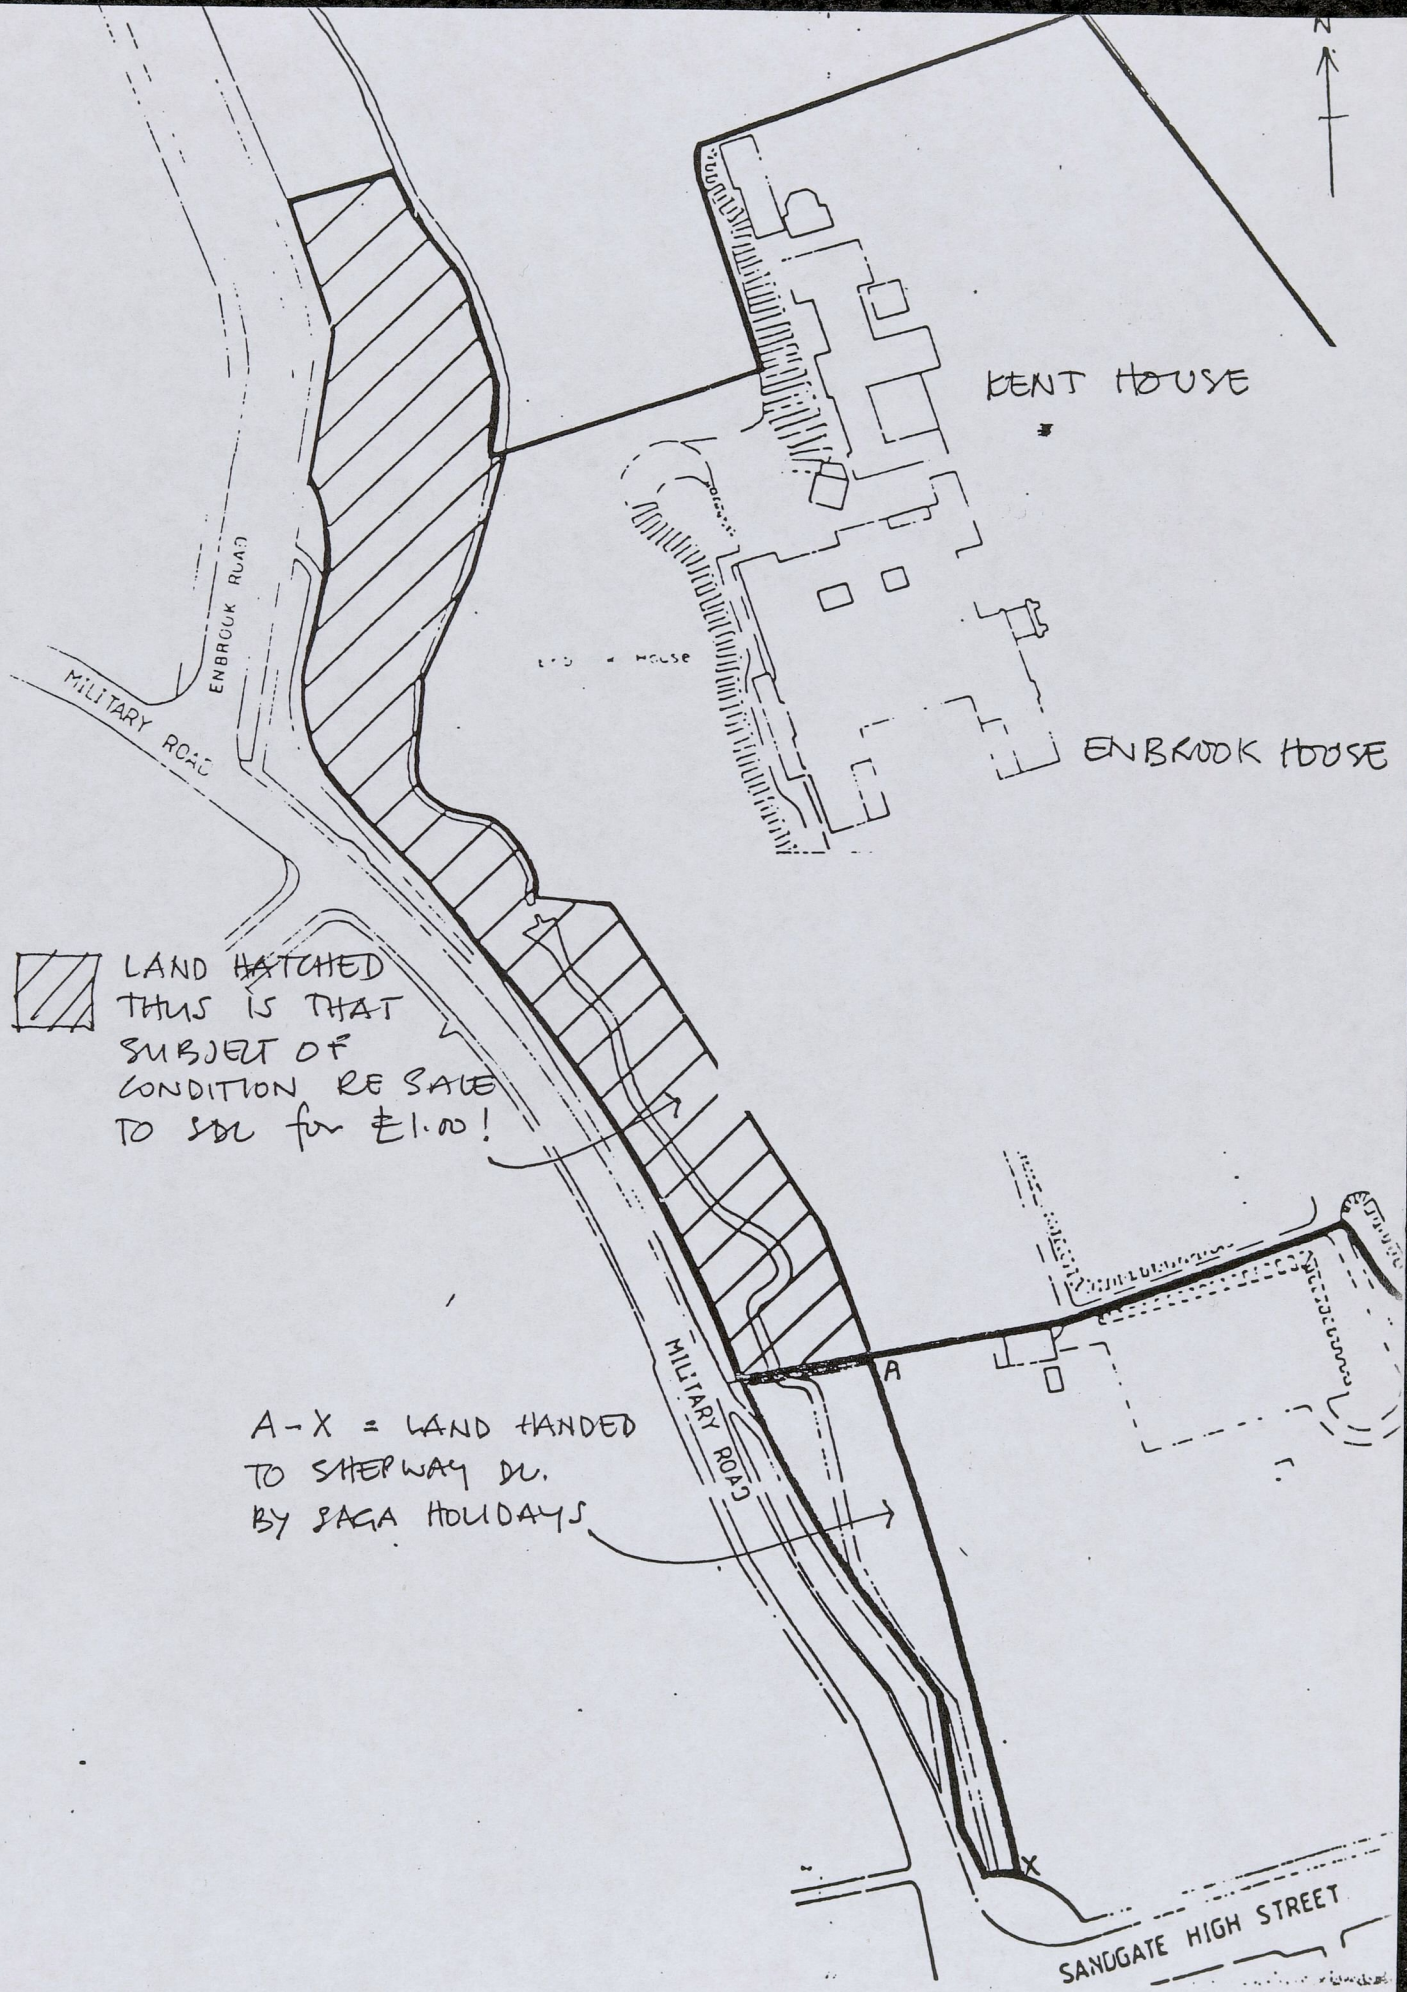 N
KENT HOUSE
ENBROOK ROAD
MILITARY ROAD
HOUSE
ENBROOK HOUSE
LAND HATCHED
THUS IS THAT
SUBJECT OF
CONDITION RE SALE
TO SDC for £1.00!
MILITARY ROAD
A
A-X = LAND HANDED
TO SHEPWAY DC.
BY SAGA HOLIDAYS
X
SANDGATE HIGH STREET